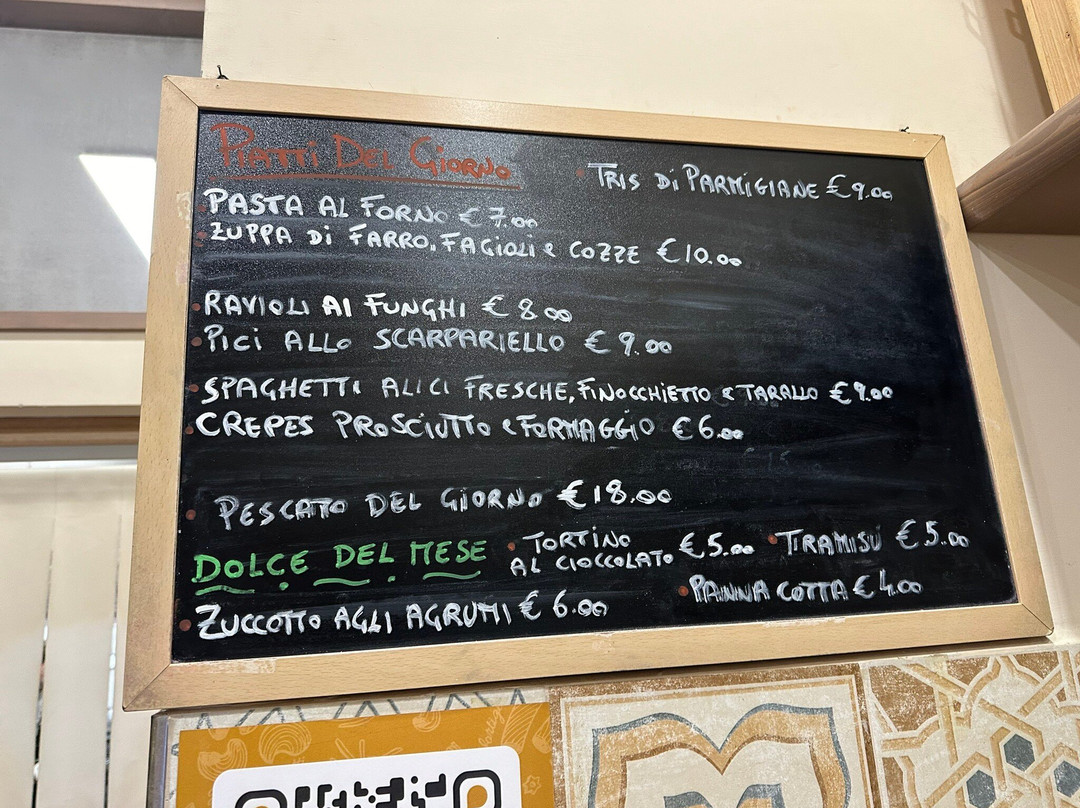 PIATTI DEL GIORNO
TRIS DI PARMIGIANE € 9.00
PASTA AL FORNO € 7.00
ZUPPA DI FARRO, FAGIOLI e COZZE € 10.00
RAVIOLI AI FUNGHI € 8.00
PICI ALLO SCARPARIELLO € 9.00
SPAGHETTI ALICI FRESCHE, FINOCCHIETTO e TARALLO € 9.00
CREPES PROSCIUTTO e FORMAGGIO € 6.00
PESCATO DEL GIORNO € 18.00
DOLCE DEL MESE
ZUCCOTTO AGLI AGRUMI € 6.00
TORTINO
AL CIOCCOLATO € 5.00
TIRAMISÙ € 5.00
PANNA COTTA € 4.00